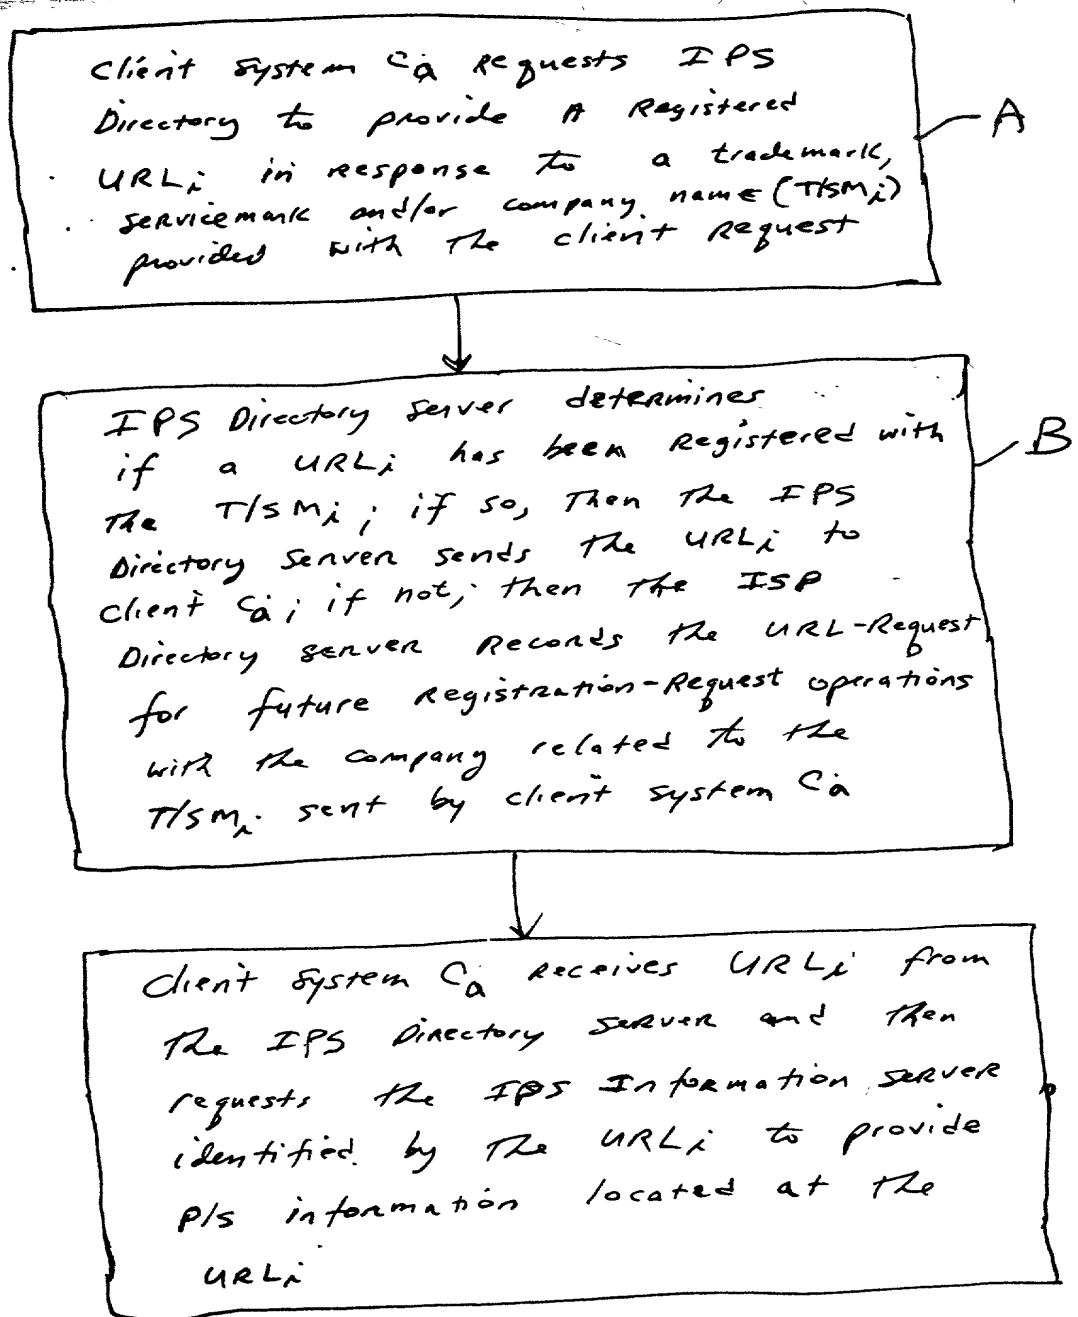 Client System Ca Requests IPS
Directory to provide A Registered
URLi in response to a trademark,
servicemark and/or company name (T/SMi)
provided with the client Request
A
IPS Directory Server determines
if a URLi has been Registered with
the T/SMi; if so, Then the IPS
Directory Server sends the URLi to
client Ca; if not; then the ISP
Directory server Records the URL-Request
for future Registration-Request operations
with the company related to the
T/SMi sent by client system Ca
B
Client System Ca Receives URLi from
The IPS Directory Server and then
requests the IPS Information Server
identified by The URLi to provide
P/s information located at the
URLi